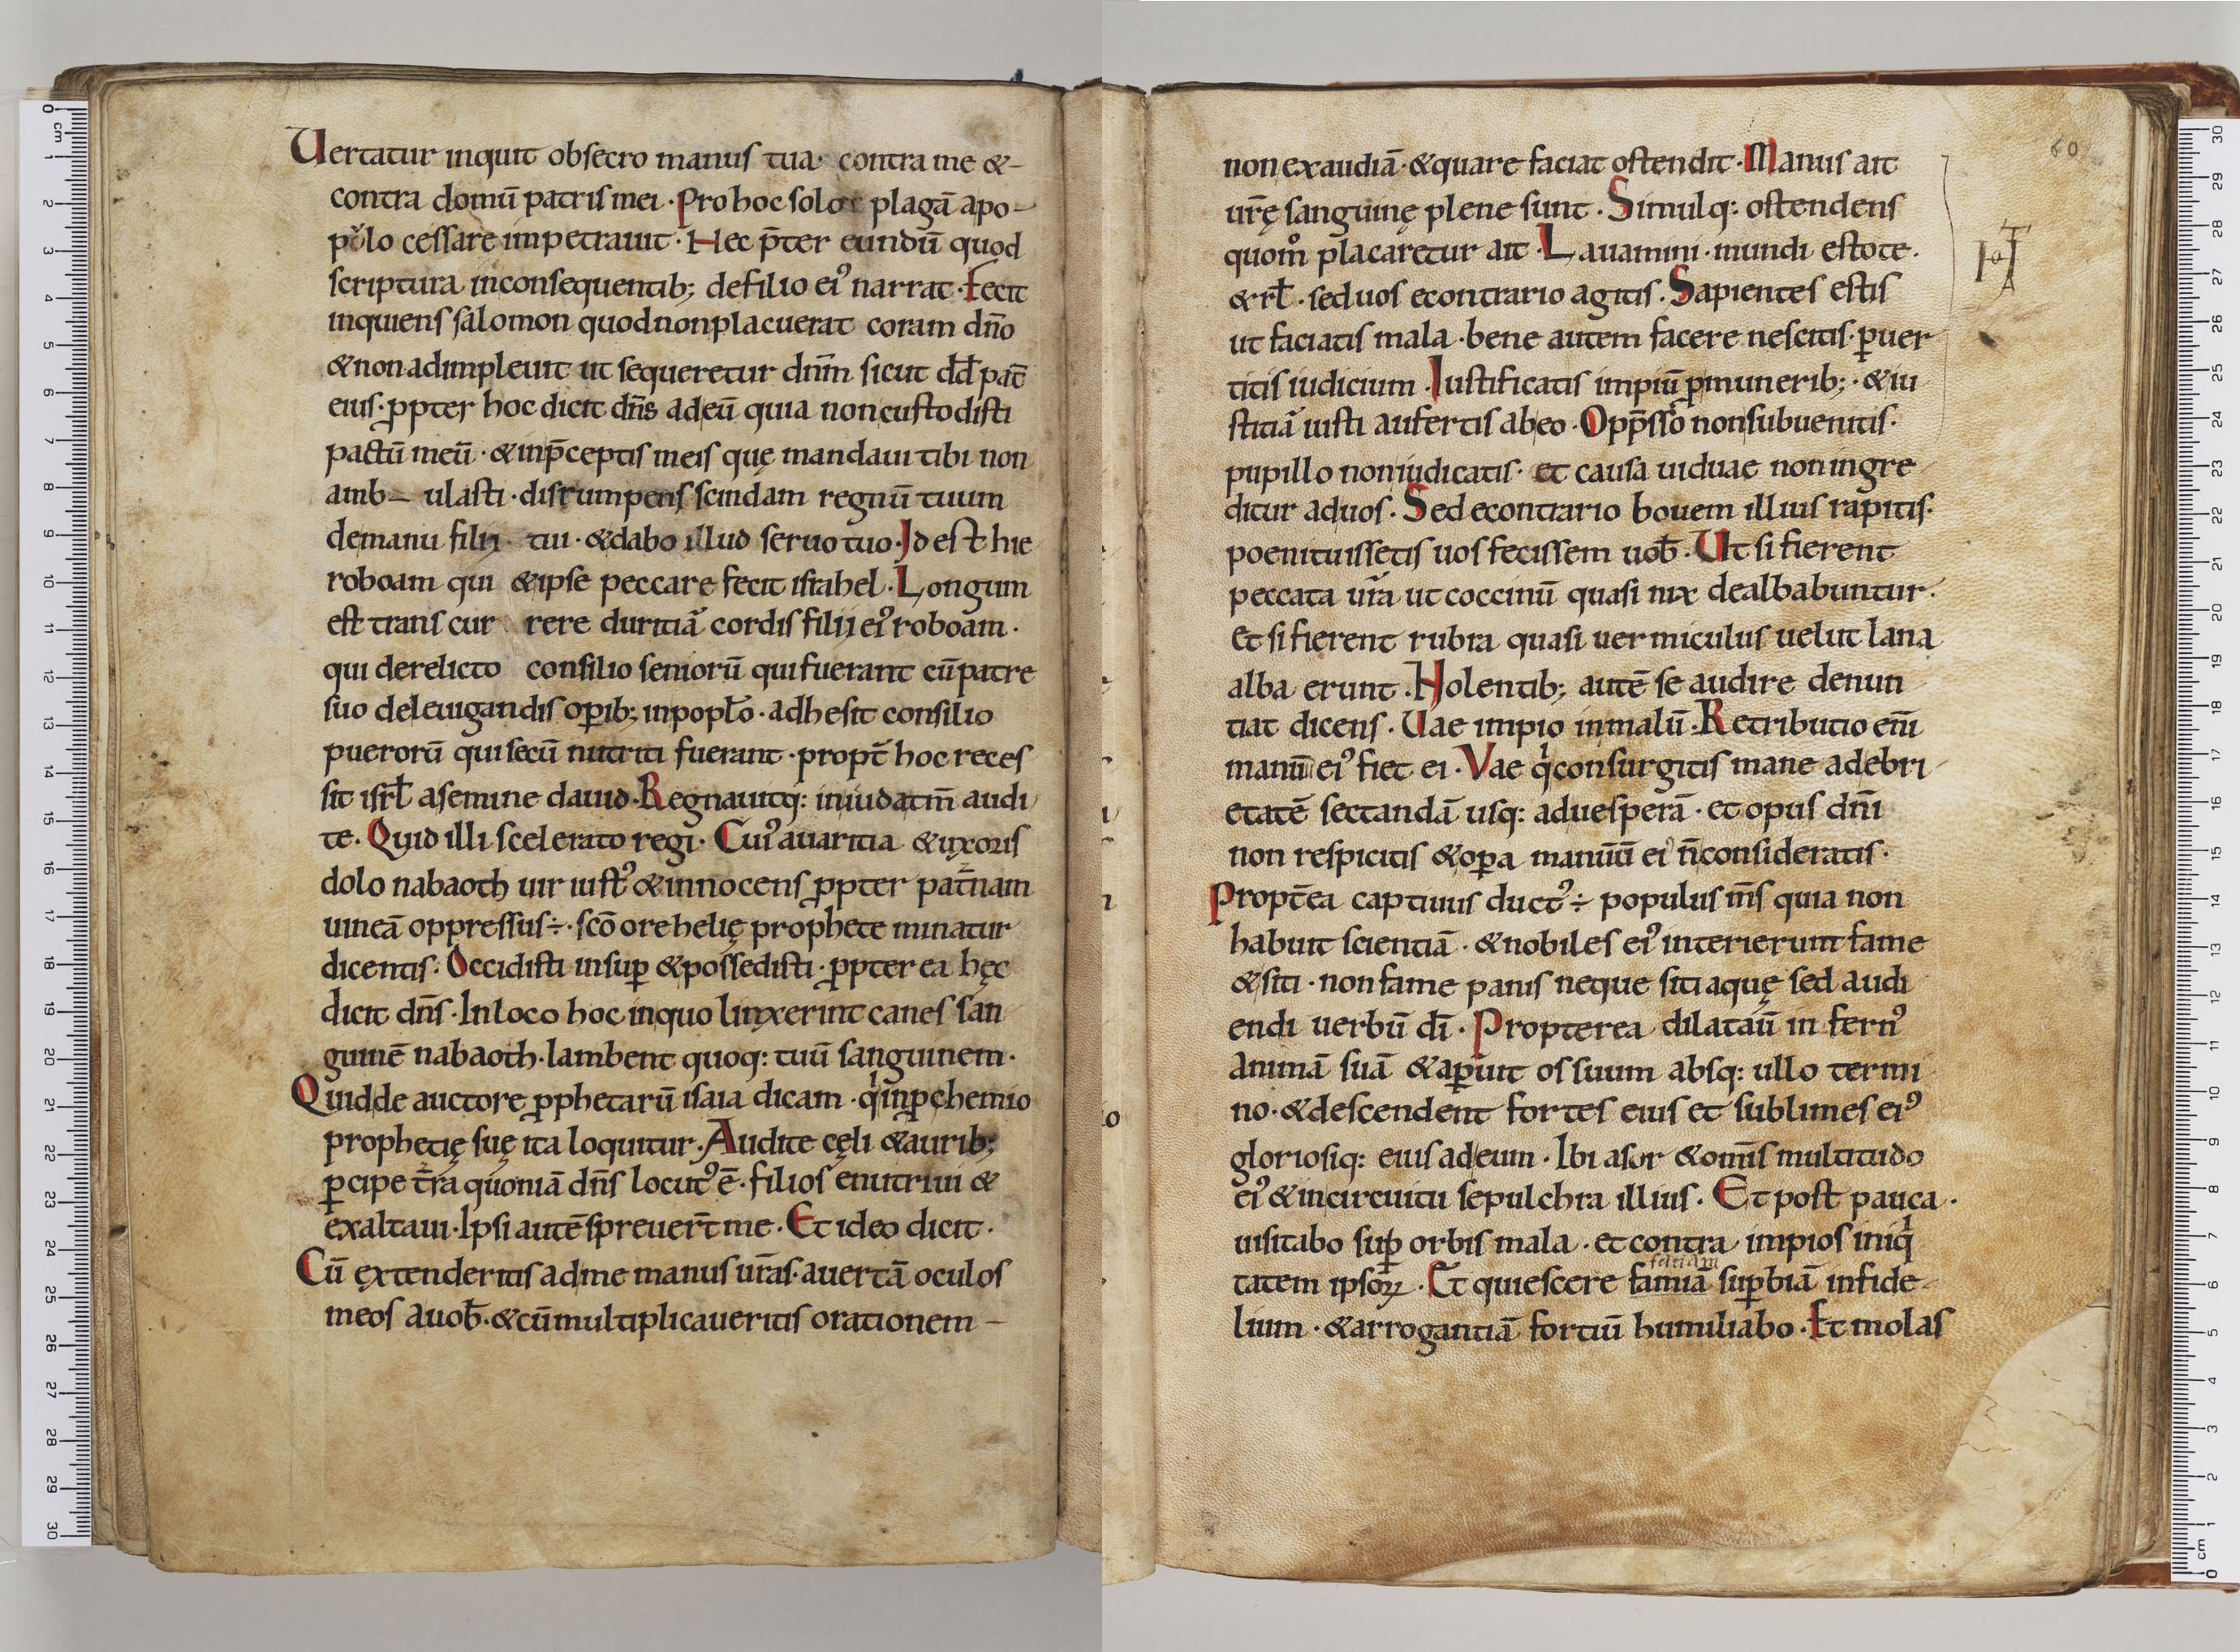 Uertatur inquit obsecro manus tua· contra me &-
contra domū patris mei · Pro hoc solo plagā apo-
pǔlo cessare impetrauit · Hec p̄ter eundū quod
scriptura inconsequentib; de filio ei᾿ narrat · Fecit
inquiens salomon quod non placuerat coram dn̄o
& non adimpleuit ut sequeretur dn̄m sicut dd̄ pat̄
eius · ꝓpter hoc dicit dn̄s ad eū quia non custodisti
pactū meū · & inp̄ceptis meis quę mandaui tibi non
amb- ulasti · disrumpens scindam regnū tuum
de manu filii tui · & dabo illud seruo tuo · Id est hie
roboam qui & ipse peccare fecit israhel · Longum
est trans cur rere duritiā cordis filii ei᾿ roboam ·
qui derelicto consilio seniorū qui fuerant cū patre
suo de leuigandis oꝑib; in popl̄o · adhesit consilio
puerorū qui secū nutriti fuerant · propt̄ hoc reces
sit isrl̄ a semine dauid · Regnauitq: in iudatm̄ audi
te. Quid illi scelerato regi · Cui᾿ auaritia & uxoris
dolo nabaoth uir iust᾿ & innocens ꝓpter pat̄nam
uineā oppressus ÷ · scō ore helię prophete minatur
dicentis: Occidisti insuꝑ & possedisti · ꝓpter ea hęc
dicit dn̄s · In loco hoc in quo linxerint canes san
guinē nabaoth · lambent quoq: tuū sanguinem ·
Quid de auctore ꝓphetarū isaia dicam · qͥ in ꝓhemio
prophetię suę ita loquitur · Audite cęli & aurib;
ꝑcipe t̄ra quoniā dn̄s locut᾿ ē · filios enutriui &
exaltaui · Ipsi autē spreuer̄t me · Et ideo dicit ·
Cū extenderitis ad me manus ur̄as · auertā oculos
meos a uob̄ · & cū multiplicaueritis orationem -
60
non exaudiā · & quare faciat ostendit · Manus ait
ur̄ę sanguinę plene sunt · Simulq: ostendens
quom̊ placaretur ait · Lauamini · mundi estote ·
& rl̄ · sed uos econtrario agitis · Sapientes estis
ut faciatis mala · bene autem facere nescitis · ꝑuer
titis iudicium · Iustificatis impiū ꝓ munerib; · & iu
stitiā iusti aufertis ab eo · Opp̄sso non subuenitis ·
pupillo non iudicatis · et causa uiduae non ingre
ditur ad uos · Sed econtrario bouem illius rapitis ·
poenituissetis uos fecissem uob̄ · Ut si fierent
peccata ur̄a ut coccinū quasi nix dealbabuntur ·
Et si fierent rubra quasi uermiculus uelut lana
alba erunt · Nolentib; autē se audire denun
tiat dicens · Uae impio in malū · Retributio eni̅
manuū ei᾿ fiet ei · Vae qͥ consurgitis mane ad ebri
etatē sectandā usq: ad uesperā · et opus dn̄i
non respicitis & oꝑa manuū ei᾿ n̄ consideratis ·
Propt̄ea captiuus duct᾿ ÷ populus m̄s quia non
habuit scientiā · & nobiles ei᾿ interierunt fame
& siti · non fame panis neque siti aquę sed audi
endi uerbū dī · Propterea dilatauī infern᾿
animā suā & aꝑuit os suum absq: ullo termi
no · & descendent fortes eius et sublimes ei᾿
gloriosiq: eius ad eum · Ibi asor & omi̅s multitudo
ei᾿ & in circuitu sepulchra illius · Et post pauca ·
uisitabo suꝑ orbis mala · et contra impios iniqͥ
tatem ipsoꝝ · Et quiescere famia suꝑbiā infide-
faciam
lium · & arrogantiā fortiū humiliabo · Et molas